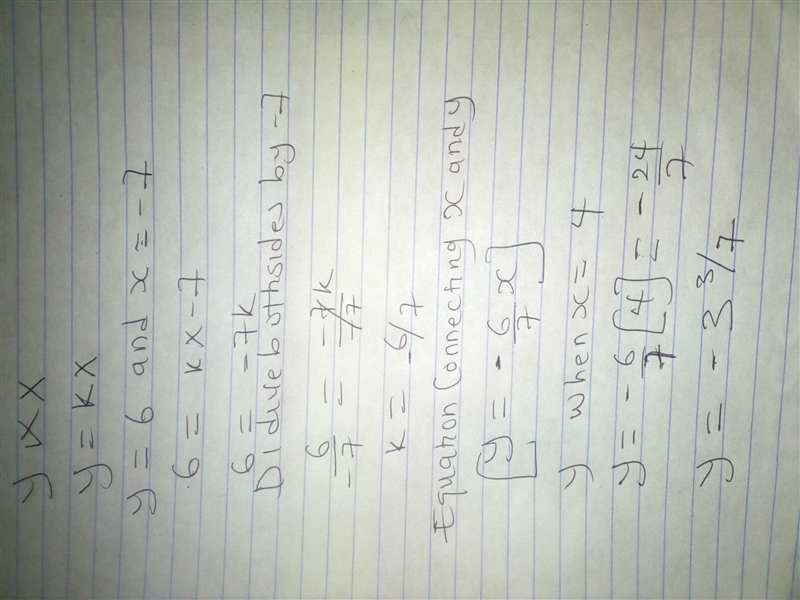 y ∝ x
y = kx
y = 6 and x = -7
6 = k x -7
6 = -7k
Divide both sides by -7
6/-7 = -7k/-7
k = -6/7
Equation Connecting x and y
[y = - 6/7 x]
y when x = 4
y = - 6/7 [4] = - 24/7
y = -3 3/7